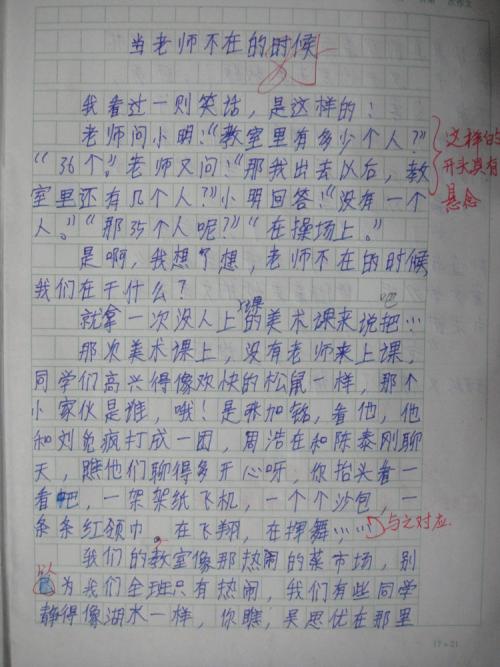 当老师不在的时候
我看过一则笑话，是这样的：
老师问小明：“教室里有多少个人？”
“36个。”老师又问：“那我出去以后，教
室里还有几个人？”小明回答：“没有一个
人。”“那35个人呢？”“在操场上。”
这样的
开头具有
悬念
是啊，我想了想，老师不在的时候
我们在干什么？
就拿一次没人上课的美术课来说把…
吧
那次美术课上，没有老师来上课，
同学们高兴得像欢快的松鼠一样，那个
小家伙是谁，哦！是张加铭，看他，他
和刘兑疯打成一团，周浩在和陈泰刚聊
天，瞧他们聊得多开心呀，你抬头看一
看吧，一架架纸飞机，一个个沙包，一
条条红领巾，在飞翔，在挥舞……
与之对应
我们的教室像那热闹的菜市场，别
以为我们全班只有热闹，我们有些同学
静得像湖水一样，你瞧，吴思优在那里
17×21